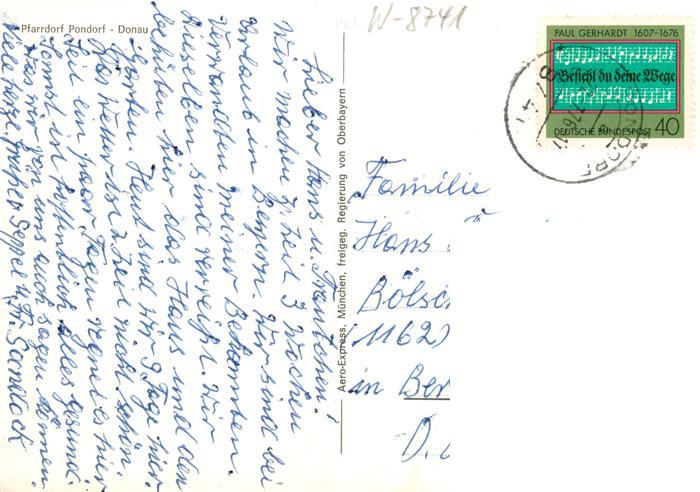 Pfarrdorf Pondorf - Donau
W-8741
Lieber Hans u. Frauchen!
Wir machen z. Zeit 3 Wochen
Urlaub in Bayern. Wir sind bei
Verwandten meiner Bekannten.
Dieselben sind verreist. Wir
behüten hier das Haus und den
Garten. Heut sind wir 9 Tage hier.
Das Wetter ist z. Zeit nicht schön.
Seit ein paar Tagen regnet es hier
Sonst ist hoffentlich alles gesund.
was wir von uns auch sagen können.
Viele herzl. Grüße Seppel u. Fr. Sandock
Aero-Express, München, freigeg. Regierung von Oberbayern
PAUL GERHARDT 1607-1676
Befiehl du deine Wege
DEUTSCHE BUNDESPOST 40
8741
Familie
Hans
Bölsc
(1162)
in Ber
D.